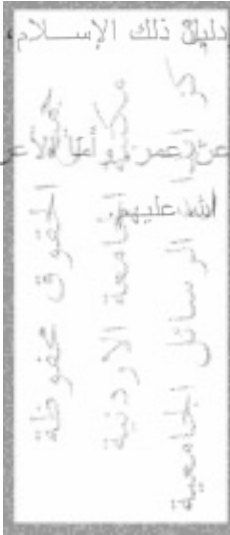 دليل ذلك الإســلام،
عن عمر
الله عليهم.
جميع الحقوق محفوظة
مكتبة الجامعة الاردنية
مركز ايداع الرسائل الجامعية